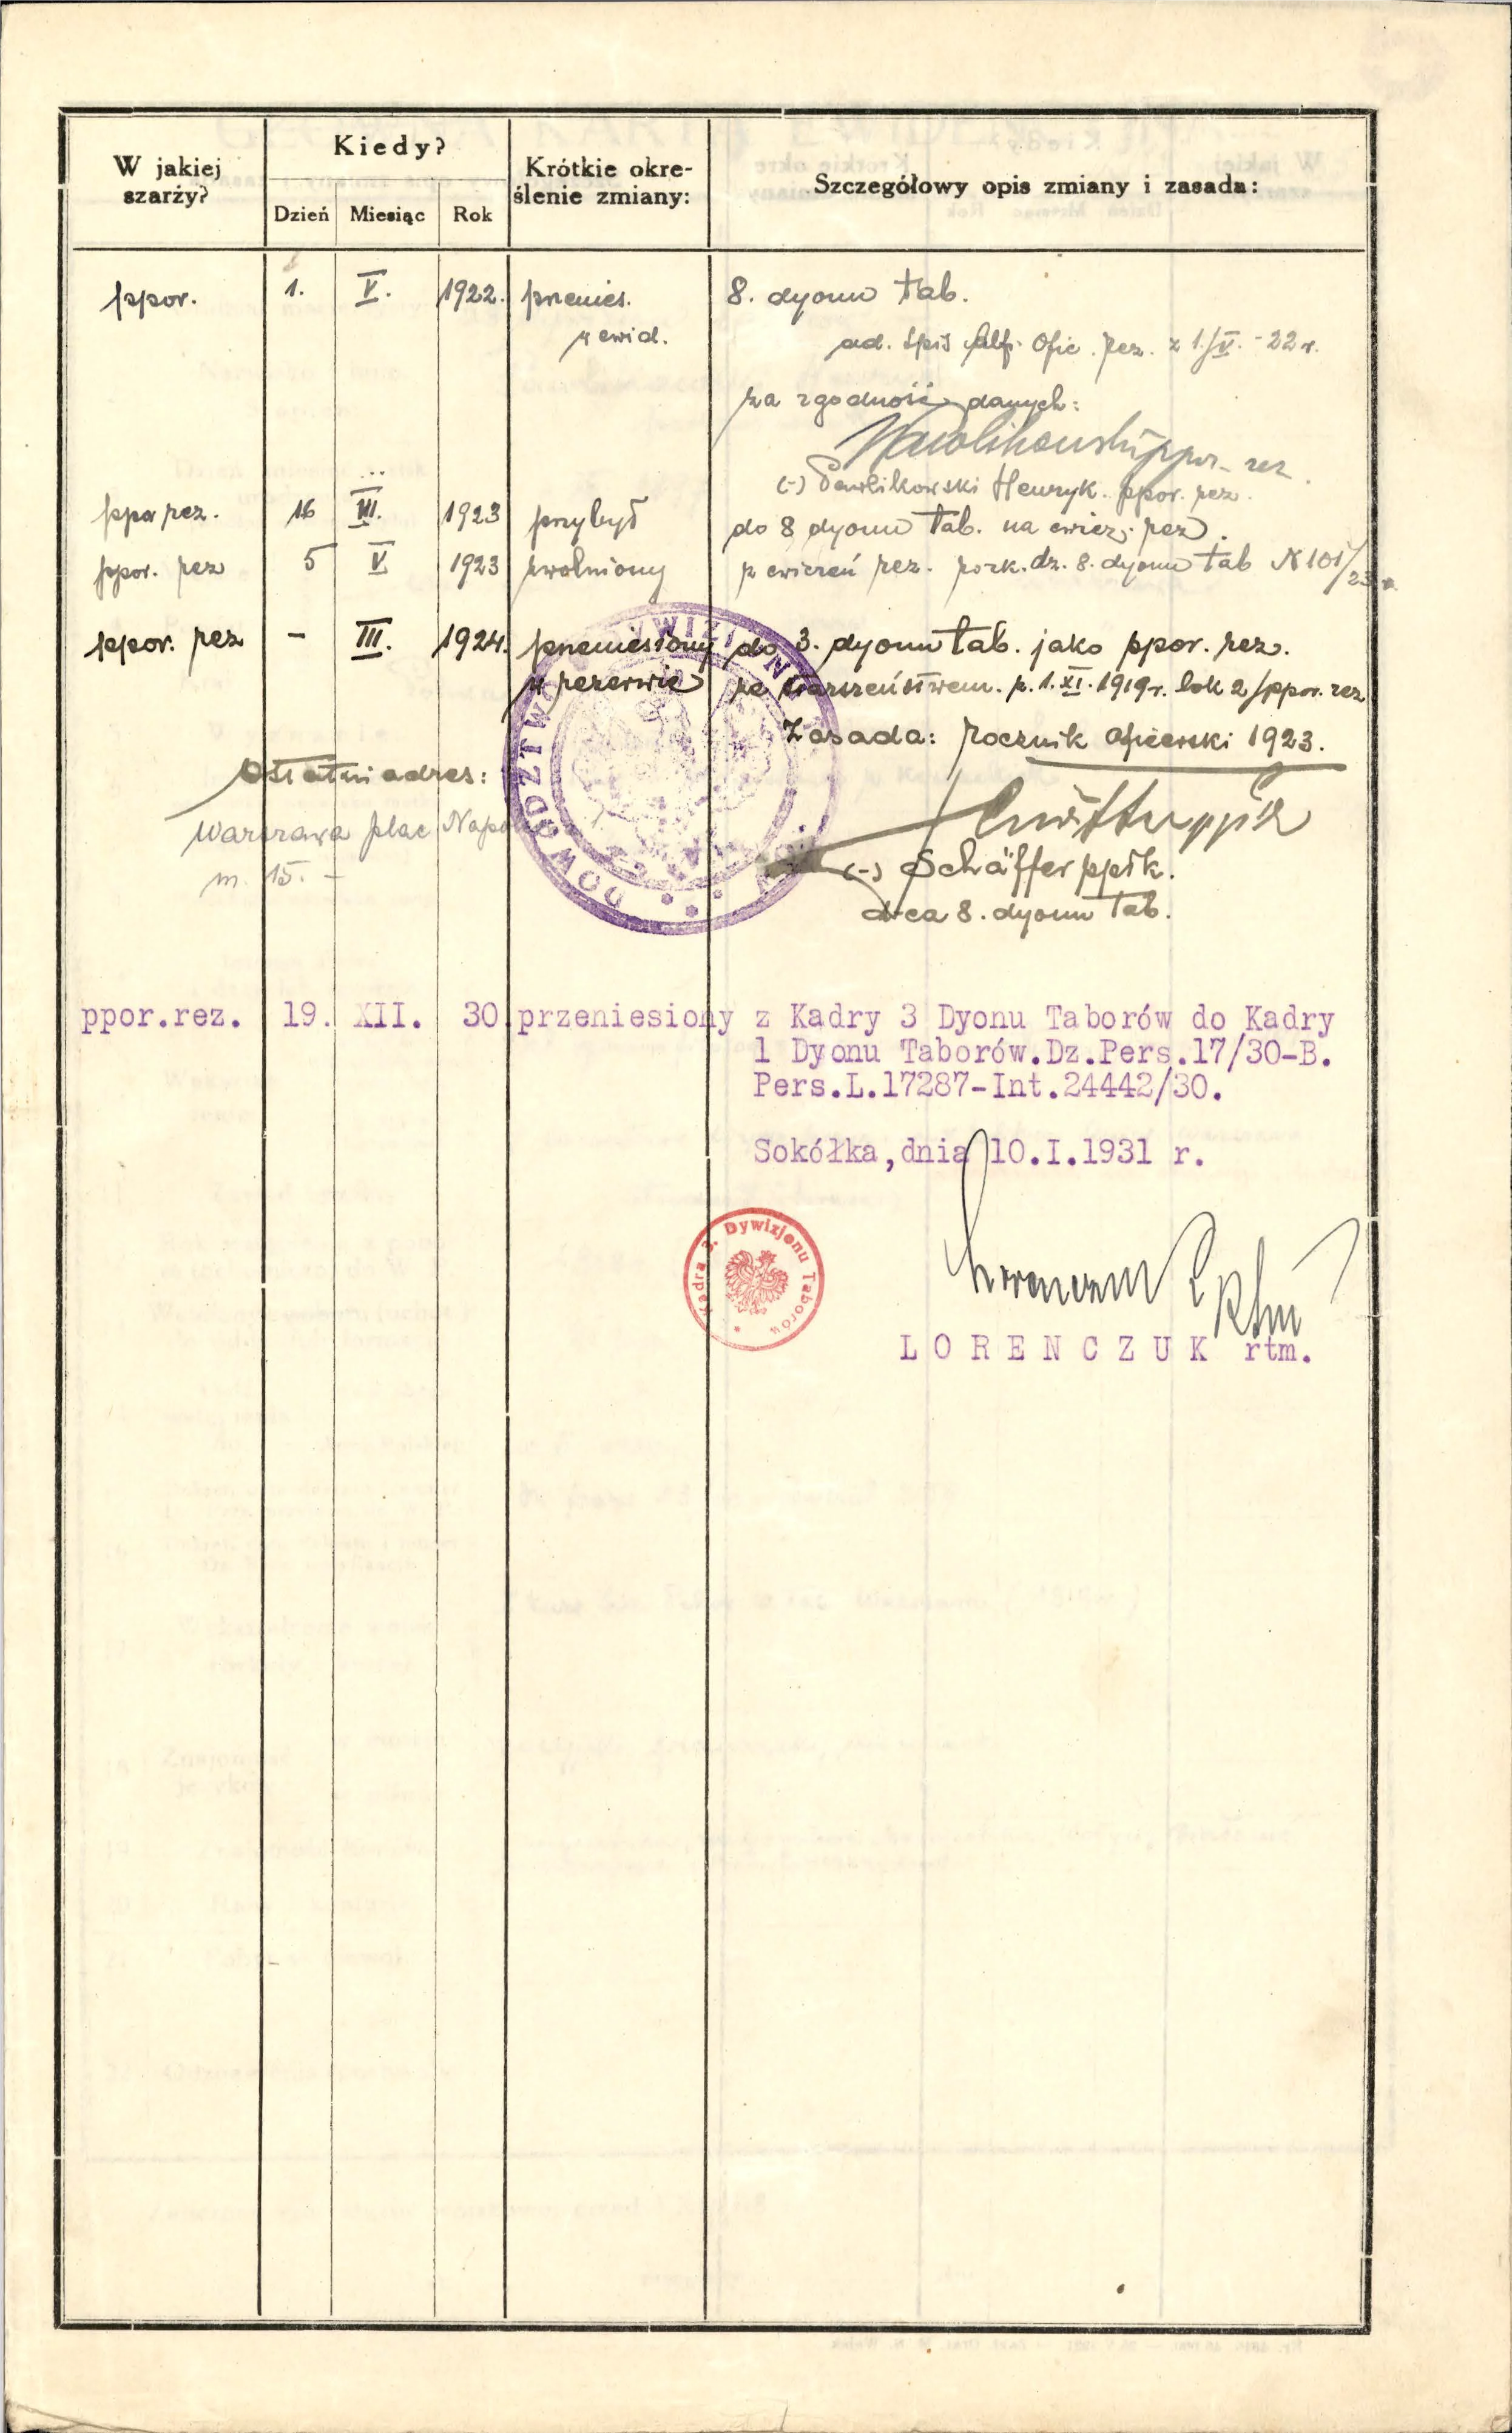 W jakiej szarży?
Kiedy?
Dzień Miesiąc Rok
Krótkie okre-
ślenie zmiany:
Szczegółowy opis zmiany i zasada:
ppor. 1. V. 1922. przenies. 8. dyonu tab.
w ewid. ad. spis alf. Ofic. rez. z 1./V.-22 r.
za zgodność danych:
ppor. rez.
(-) Pawlikowski Henryk. ppor. rez.
ppor rez. 16 III. 1923 przybył do 8 dyonu tab. na ćwicz. rez.
ppor. rez 5 V 1923 zwolniony z ćwiczeń rez. rozk. dz. 8. dyonu tab N 101/23 r.
ppor. rez - III. 1924. przeniesiony do 3. dyonu tab. jako ppor. rez.
w rezerwie ze starszeństwem z 1.XI.1919 r. lok 2/ppor. rez
Zasada: Rocznik oficerski 1923.
Ostatni adres:
Warszawa plac Napol
m. 15. -
(-) Schäffer ppłk.
d-ca 8. dyonu tab.
DOWÓDZTWO
ppor.rez. 19. XII. 30 przeniesiony z Kadry 3 Dyonu Taborów do Kadry
1 Dyonu Taborów.Dz.Pers.17/30-B.
Pers.L.17287-Int.24442/30.
Sokółka,dnia 10.I.1931 r.
Kadra 3. Dywizjonu Taborów
L O R E N C Z U K rtm.